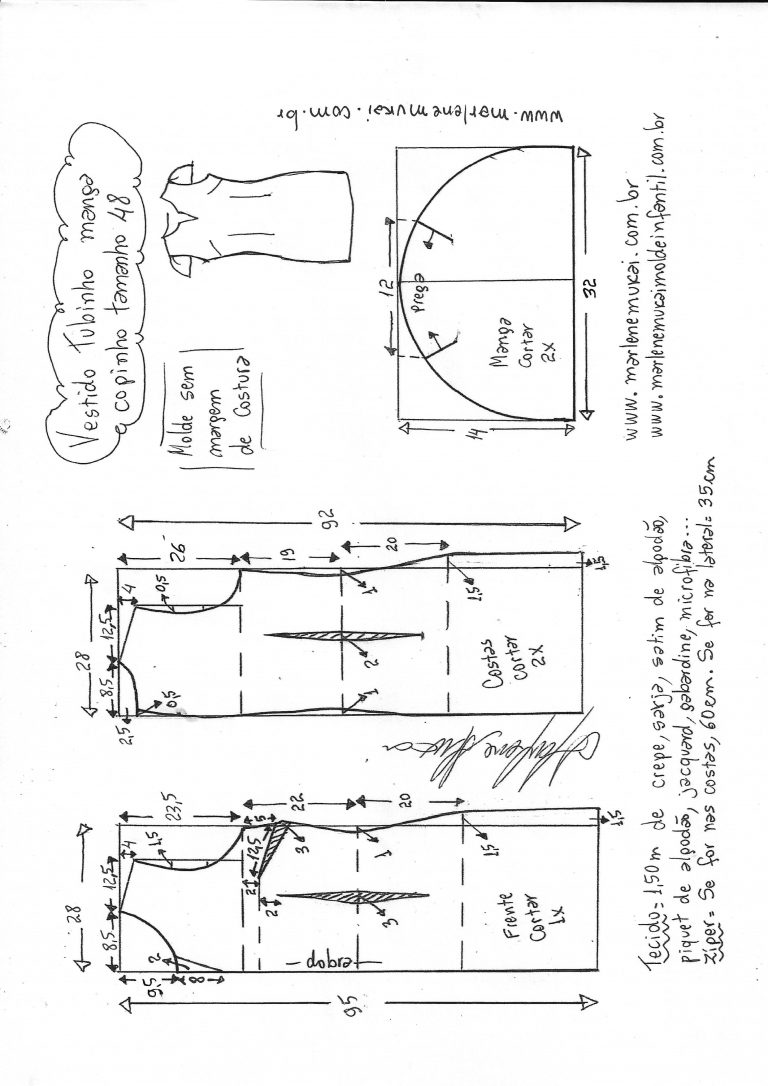 Vestido Tubinho manga
copinho tamanho 48
Molde sem
margem
de Costura
www.marlenemukai.com.br
12
Prega
Manga
Cortar
2x
14
32
www.marlenemukai.com.br
www.marlenemukaimoldeinfantil.com.br
92
26
19
20
28
8,5
12,5
4
0,5
2,5
0,5
1
2
1
1,5
1,5
Costas
cortar
2x
95
23,5
22
20
28
8,5
12,5
4
1,5
9,5
2
8
5
12,5
3
2
2
1
3
1,5
1,5
dobra
Frente
Cortar
1x
Tecido= 1,50m de crepe, sarja, satim de algodão,
piquet de algodão, jacquard, gabardine, microfibra...
Zíper= Se for nas costas, 60cm. Se for na lateral= 35cm